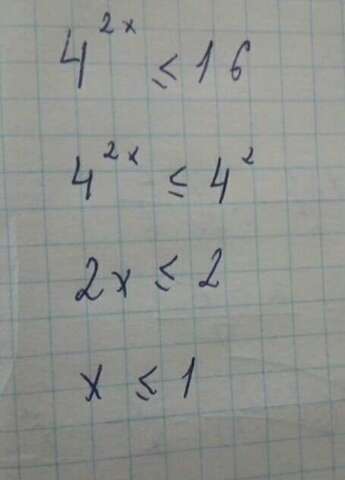 4^{2x} ≤ 16
4^{2x} ≤ 4^{2}
2x ≤ 2
x ≤ 1